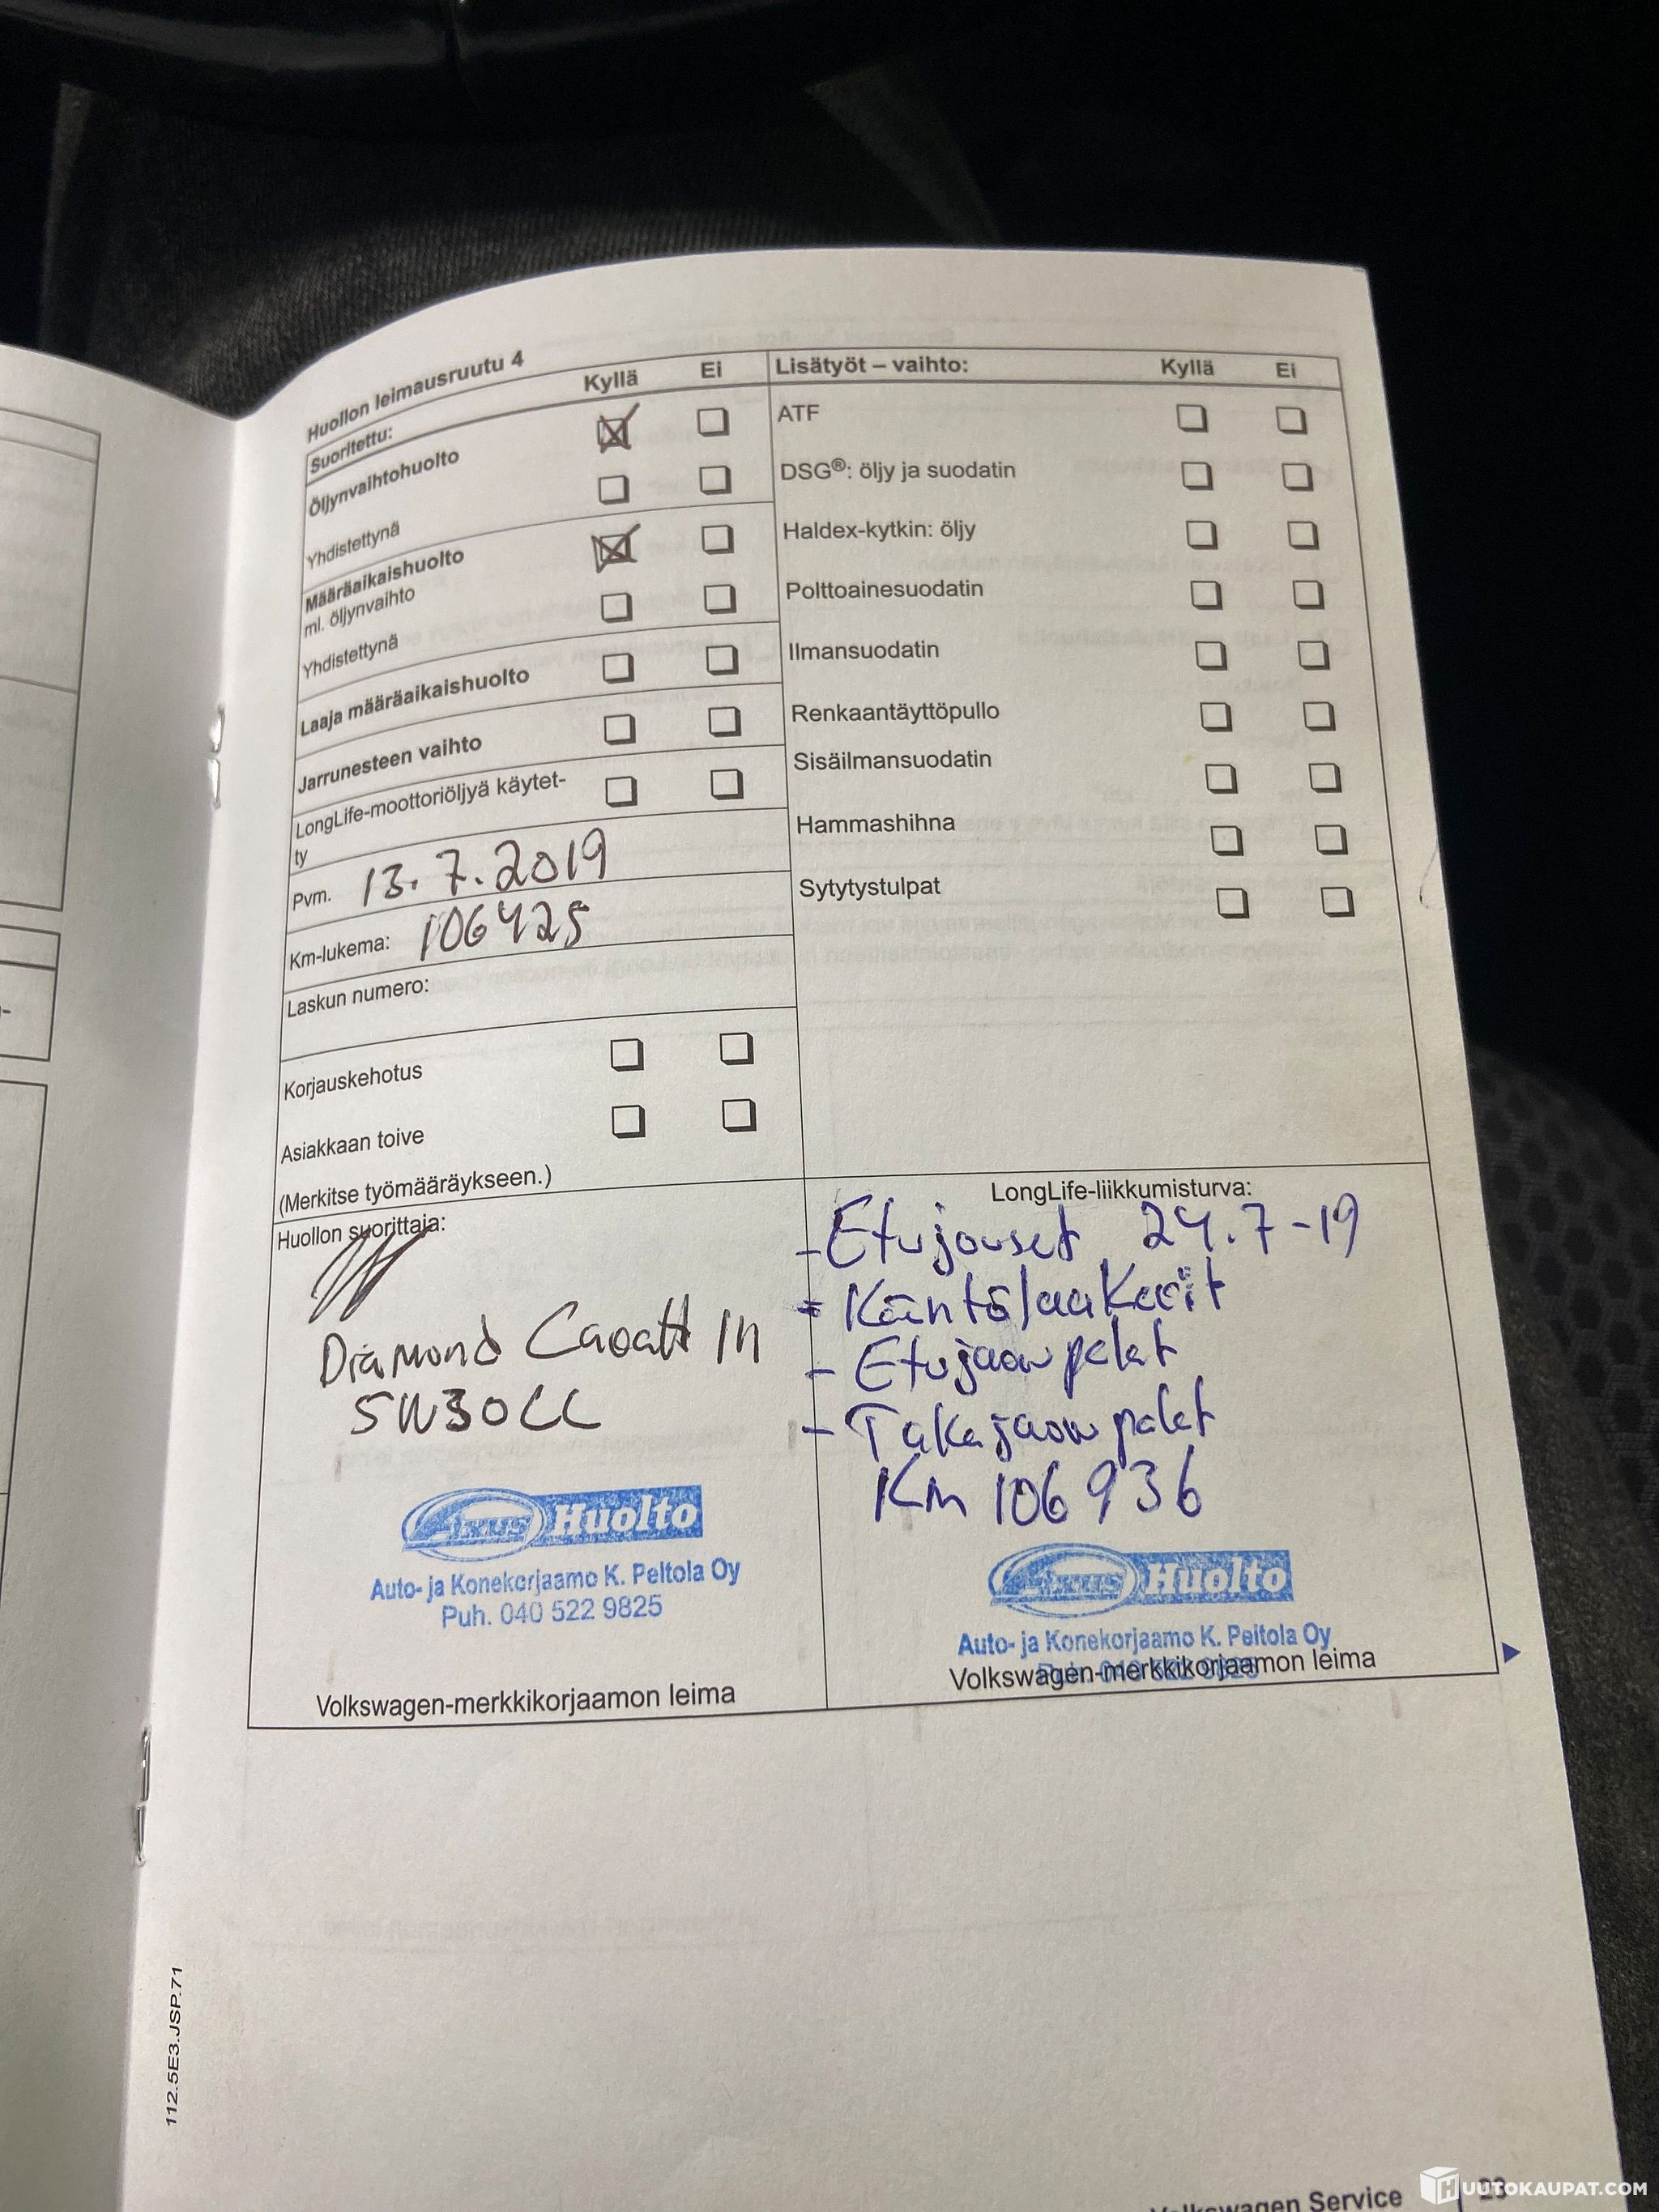 Huollon leimausruutu 4
Suoritettu: Kyllä Ei
Öljynvaihtohuolto
Yhdistettynä
Määräaikaishuolto
ml. öljynvaihto
Yhdistettynä
Laaja määräaikaishuolto
Jarrunesteen vaihto
LongLife-moottoriöljyä käytet-
ty
Pvm. 13.7.2019
Km-lukema: 106425
Laskun numero:
Korjauskehotus
Asiakkaan toive
(Merkitse työmääräykseen.)
Lisätyöt – vaihto: Kyllä Ei
ATF
DSG®: öljy ja suodatin
Haldex-kytkin: öljy
Polttoainesuodatin
Ilmansuodatin
Renkaantäyttöpullo
Sisäilmansuodatin
Hammashihna
Sytytystulpat
Huollon suorittaja:
Diamond
5W30LL
Huolto
Auto- ja Konekorjaamo K. Peltola Oy
Puh. 040 522 9825
Volkswagen-merkkikorjaamon leima
LongLife-liikkumisturva:
- Etujouset 24.7-19
- Kääntölaakerit
- Etujarrupalat
- Takajarrupalat
Km 106936
Huolto
Auto- ja Konekorjaamo K. Peltola Oy
Puh. 040 522 9825
Volkswagen-merkkikorjaamon leima
112.5E3.JSP.71
Volkswagen Service
HUUTOKAUPAT.COM